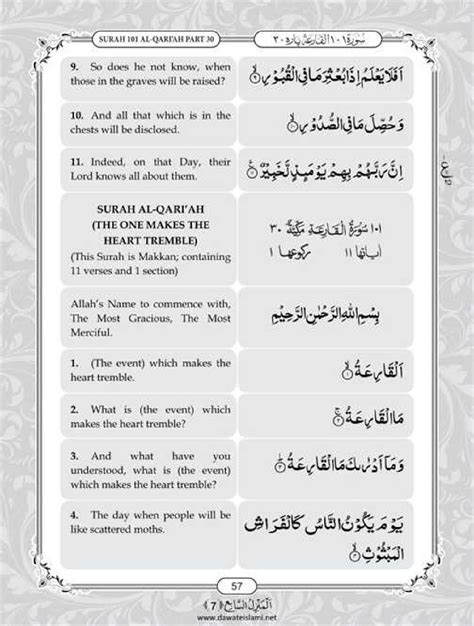 SURAH 101 AL-QARI'AH PART 30
سُوْرَةُ ١٠١ اَلْقَارِعَة پاره ٣٠
9. So does he not know, when
those in the graves will be raised?
اَفَلَا يَعْلَمُ اِذَا بُعْثِرَ مَا فِى الْقُبُوْرِ ۙ۹
10. And all that which is in the
chests will be disclosed.
وَ حُصِّلَ مَا فِى الصُّدُوْرِ ۙ۱۰
11. Indeed, on that Day, their
Lord knows all about them.
اِنَّ رَبَّهُمْ بِهِمْ يَوْمَئِذٍ لَّخَبِيْرٌ ۱۱
SURAH AL-QARI'AH
(THE ONE MAKES THE
HEART TREMBLE)
(This Surah is Makkan; containing
11 verses and 1 section)
١٠١ سُوْرَةُ الْقَارِعَةِ مَكِّيَّةٌ ٣٠
اٰياتها ١١ ركوعها ١
Allah's Name to commence with,
The Most Gracious, The Most
Merciful.
بِسْمِ اللهِ الرَّحْمٰنِ الرَّحِيْمِ
1. (The event) which makes the
heart tremble.
اَلْقَارِعَةُ ۙ۱
2. What is (the event) which
makes the heart tremble?
مَا الْقَارِعَةُ ۚ۲
3. And what have you
understood, what is (the event)
which makes the heart tremble?
وَ مَاۤ اَدْرٰىكَ مَا الْقَارِعَةُ ؕ۳
4. The day when people will be
like scattered moths.
يَوْمَ يَكُوْنُ النَّاسُ كَالْفَرَاشِ
الْمَبْثُوْثِ ۙ۴
57
اَلْمَنْزِلُ السَّابِع ﴿7﴾
www.dawateislami.net